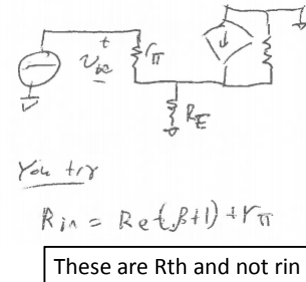 +
v_be
r_π
R_E
You try
Rin = Re(β+1) + rπ
These are Rth and not rin